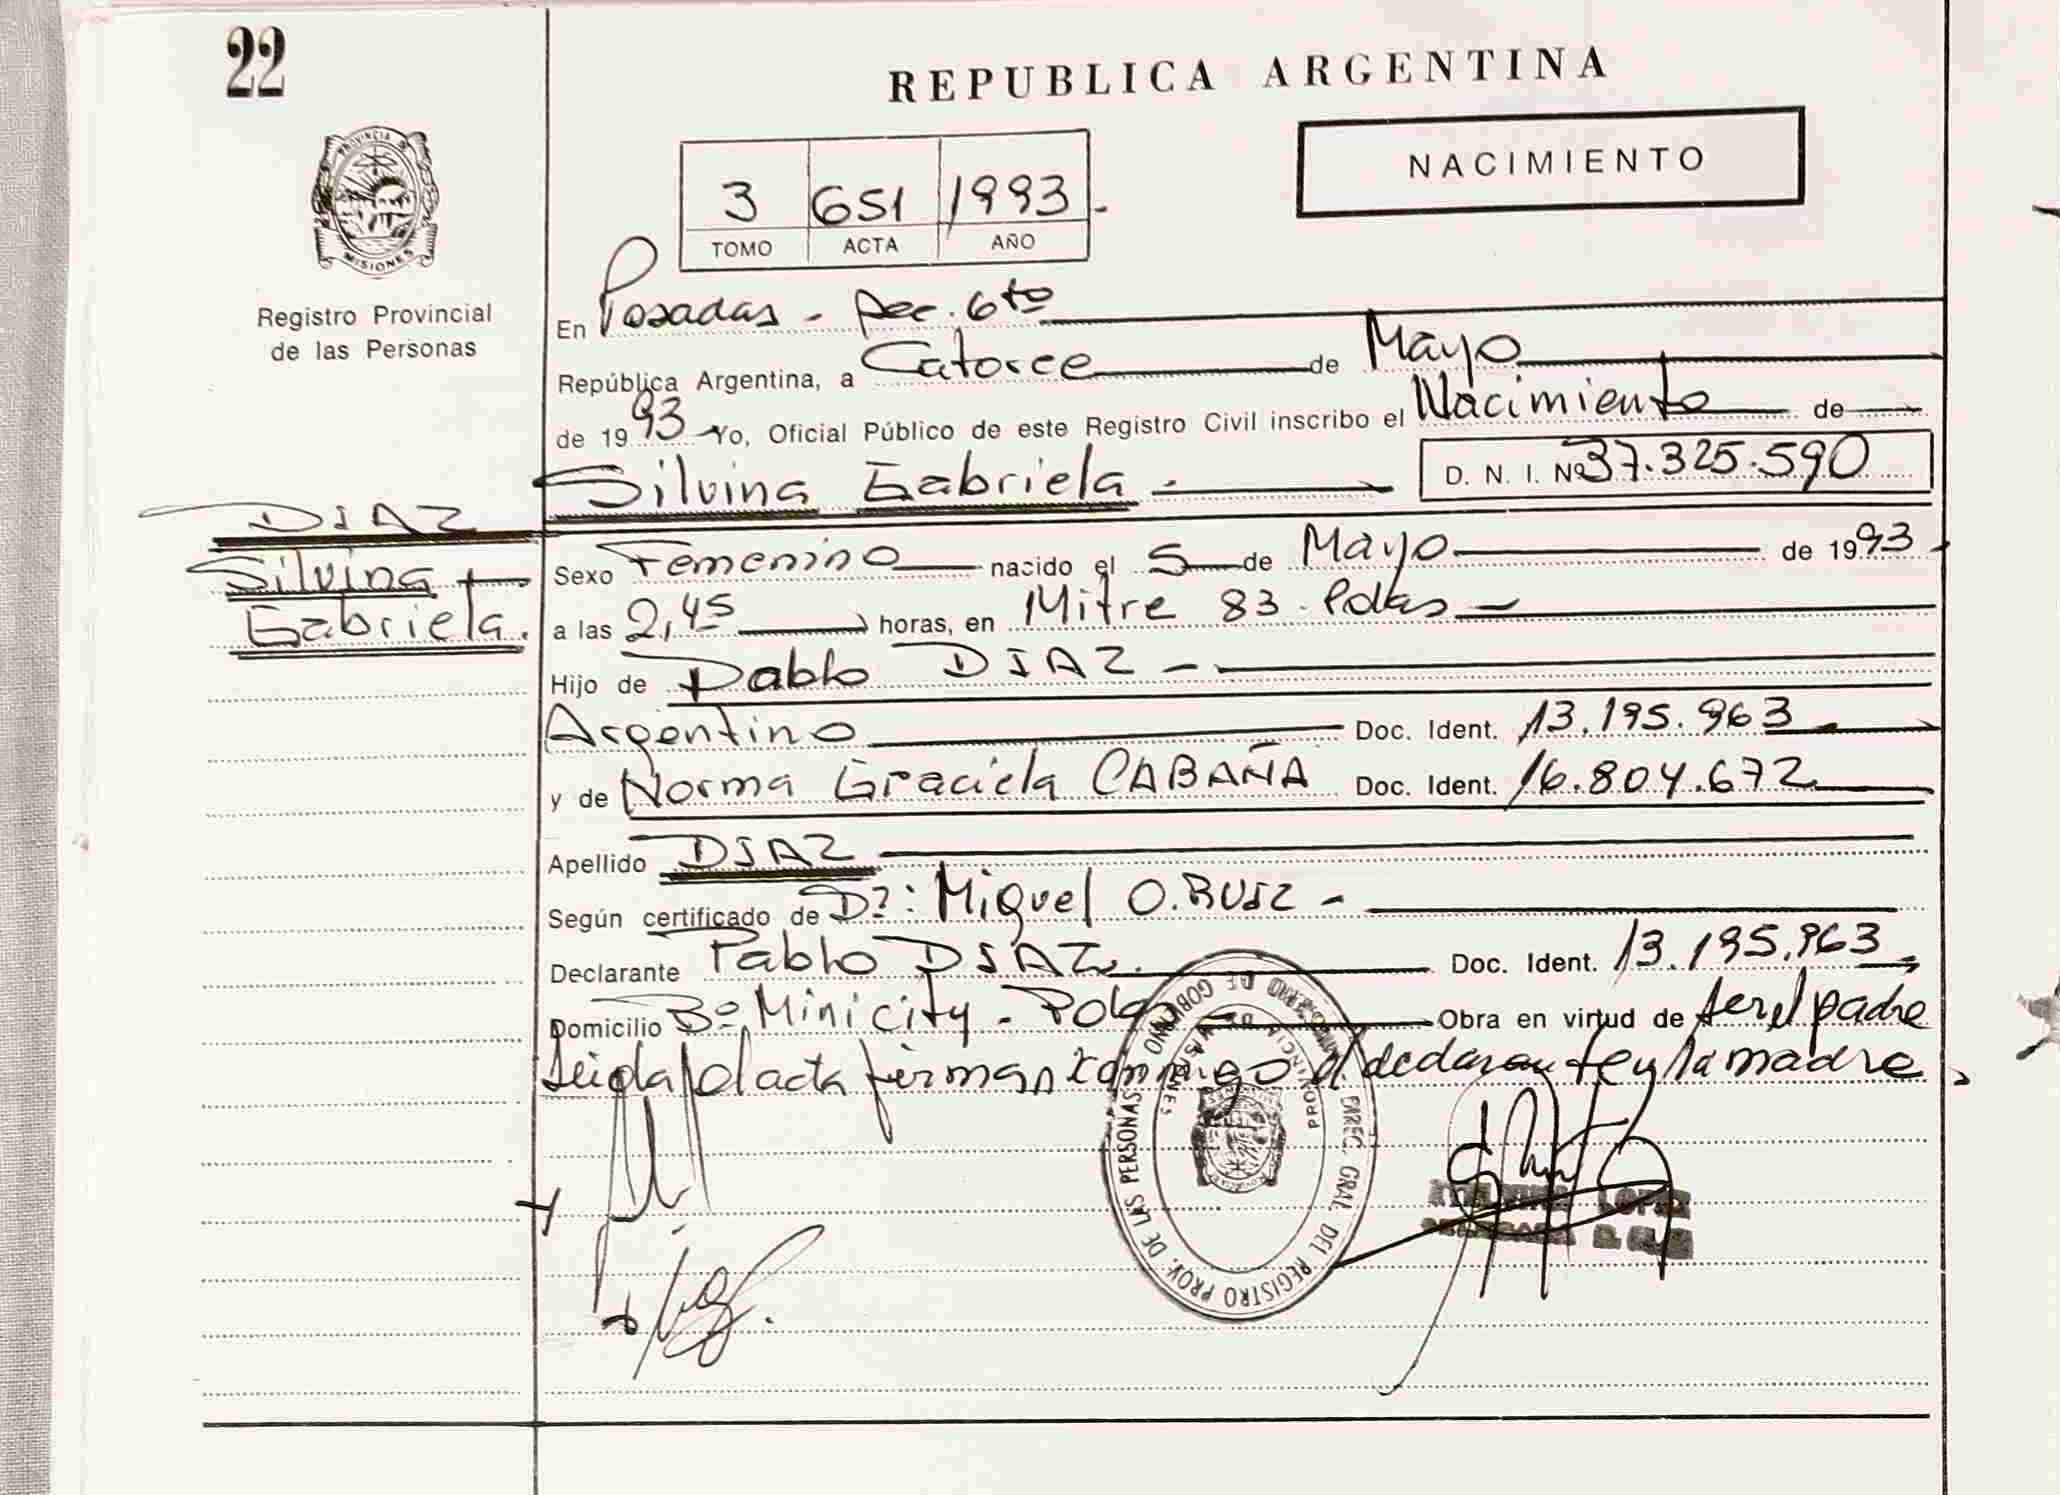 22
REPUBLICA ARGENTINA
PROVINCIA DE
MISIONES
NACIMIENTO
3 651 1993.
TOMO ACTA AÑO
Registro Provincial
de las Personas
En Posadas - Sec. 6to
República Argentina, a Catorce de Mayo
de 1993 Yo, Oficial Público de este Registro Civil inscribo el Nacimiento de
Silvina Gabriela - D. N. I. Nº 37.325.590
DIAZ
Silvina
Gabriela.
Sexo Femenino nacido el 5 de Mayo de 1993
a las 2,45 horas, en Mitre 83. Pdas
Hijo de Pablo DIAZ -
Argentino Doc. Ident. 13.195.963
y de Norma Graciela CABAÑA Doc. Ident. 16.804.672
Apellido DIAZ
Según certificado de Dr: Miguel O. RUIZ -
Declarante Pablo DIAZ. Doc. Ident. 13.195.963
Domicilio Bº Minicity - Pdas Obra en virtud de ser el padre
Leida el acta firman conmigo el declarante y la madre,
DIREC. GRAL. DEL REGISTRO PROV. DE LAS PERSONAS
MINISTERIO DE GOBIERNO
PROVINCIA DE MISIONES
LOPEZ